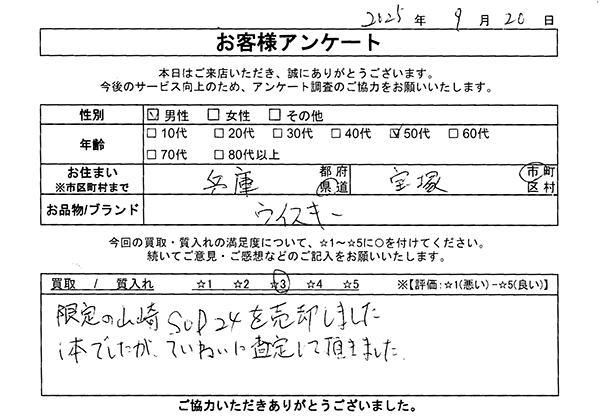 2025 年 9 月 20 日
お客様アンケート
本日はご来店いただき、誠にありがとうございます。
今後のサービス向上のため、アンケート調査のご協力をお願いいたします。
性別 ☑ 男性 □ 女性 □ その他
年齢 □ 10代 □ 20代 □ 30代 □ 40代 ☑ 50代 □ 60代
□ 70代 □ 80代以上
お住まい ※市区町村まで 兵庫 都府県道 宝塚 市町区村
お品物/ブランド ウイスキー
今回の買取・質入れの満足度について、☆1～☆5に○を付けてください。
続いてご意見・ご感想などのご記入をお願いいたします。
買取 / 質入れ ☆1 ☆2 ☆3 ☆4 ☆5 ※【評価:☆1(悪い)-☆5(良い)】
限定の山崎 SOD 24を売却しました
1本でしたが、ていねいに査定して頂きました。
ご協力いただきありがとうございました。